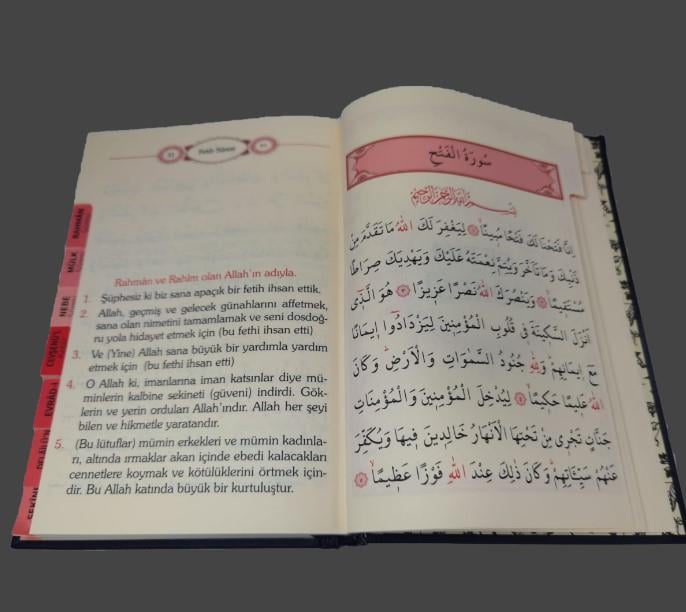 Fetih Sûresi
RAHMÂN
MÜLK
NEBE
CEVŞENÜ'L
EVRÂD-I
DELÂİLÜ'N
SEKÎNE
Rahmân ve Rahîm olan Allah'ın adıyla.
1. Şüphesiz ki biz sana apaçık bir fetih ihsan ettik.
2. Allah, geçmiş ve gelecek günahlarını affetmek,
sana olan nimetini tamamlamak ve seni dosdoğ-
ru yola hidayet etmek için (bu fethi ihsan etti)
3. Ve (Yine) Allah sana büyük bir yardımla yardım
etmek için (bu fethi ihsan etti)
4. O Allah ki, imanlarına iman katsınlar diye mü-
minlerin kalbine sekineti (güveni) indirdi. Gök-
lerin ve yerin orduları Allah'ındır. Allah her şeyi
bilen ve hikmetle yaratandır.
5. (Bu lütuflar) mümin erkekleri ve mümin kadınla-
rı, altında ırmaklar akan içinde ebedi kalacakları
cennetlere koymak ve kötülüklerini örtmek için-
dir. Bu Allah katında büyük bir kurtuluştur.
سُورَةُ الْفَتْحِ
بِسْمِ اللّٰهِ الرَّحْمٰنِ الرَّحِيمِ
اِنَّا فَتَحْنَا لَكَ فَتْحًا مُبِينًا ﴿١﴾ لِيَغْفِرَ لَكَ اللّٰهُ مَا تَقَدَّمَ مِنْ
ذَنْبِكَ وَمَا تَاَخَّرَ وَيُتِمَّ نِعْمَتَهُ عَلَيْكَ وَيَهْدِيَكَ صِرَاطًا
مُسْتَقِيمًا ﴿٢﴾ وَيَنْصُرَكَ اللّٰهُ نَصْرًا عَزِيزًا ﴿٣﴾ هُوَ الَّذِى
اَنْزَلَ السَّكِينَةَ فِى قُلُوبِ الْمُؤْمِنِينَ لِيَزْدَادُوا اِيمَانًا
مَعَ اِيمَانِهِمْ وَلِلّٰهِ جُنُودُ السَّمٰوَاتِ وَالْاَرْضِ وَكَانَ
اللّٰهُ عَلِيمًا حَكِيمًا ﴿٤﴾ لِيُدْخِلَ الْمُؤْمِنِينَ وَالْمُؤْمِنَاتِ
جَنَّاتٍ تَجْرِى مِنْ تَحْتِهَا الْاَنْهَارُ خَالِدِينَ فِيهَا وَيُكَفِّرَ
عَنْهُمْ سَيِّئَاتِهِمْ وَكَانَ ذٰلِكَ عِنْدَ اللّٰهِ فَوْزًا عَظِيمًا ﴿٥﴾